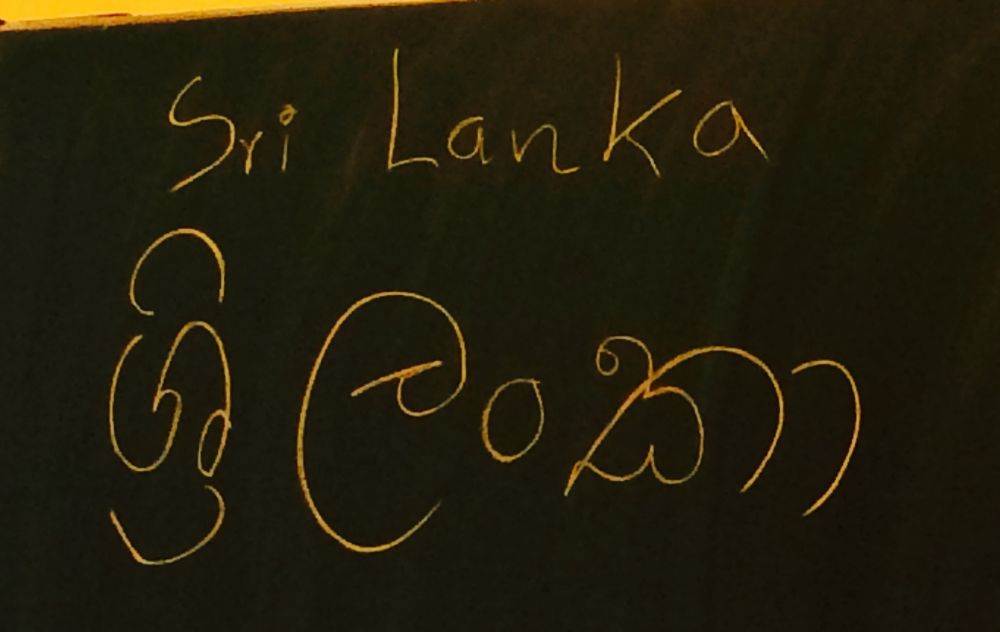 Sri Lanka
ශ්‍රි ලංකා